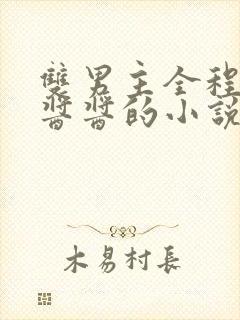 雙男主全程
醬醬的小說
木易村長